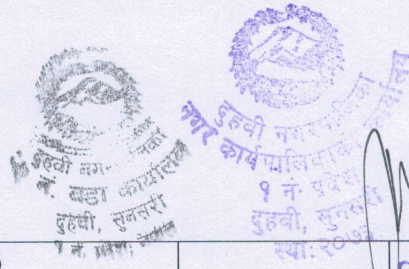 दुहवी नगर
नं. वडा कार्यालय
दुहवी, सुनसरी
दुहवी नगरपालिका
नगर कार्यपालिकाको कार्यालय
१ नं प्रदेश
दुहवी, सुनसरी
स्था: २०७३